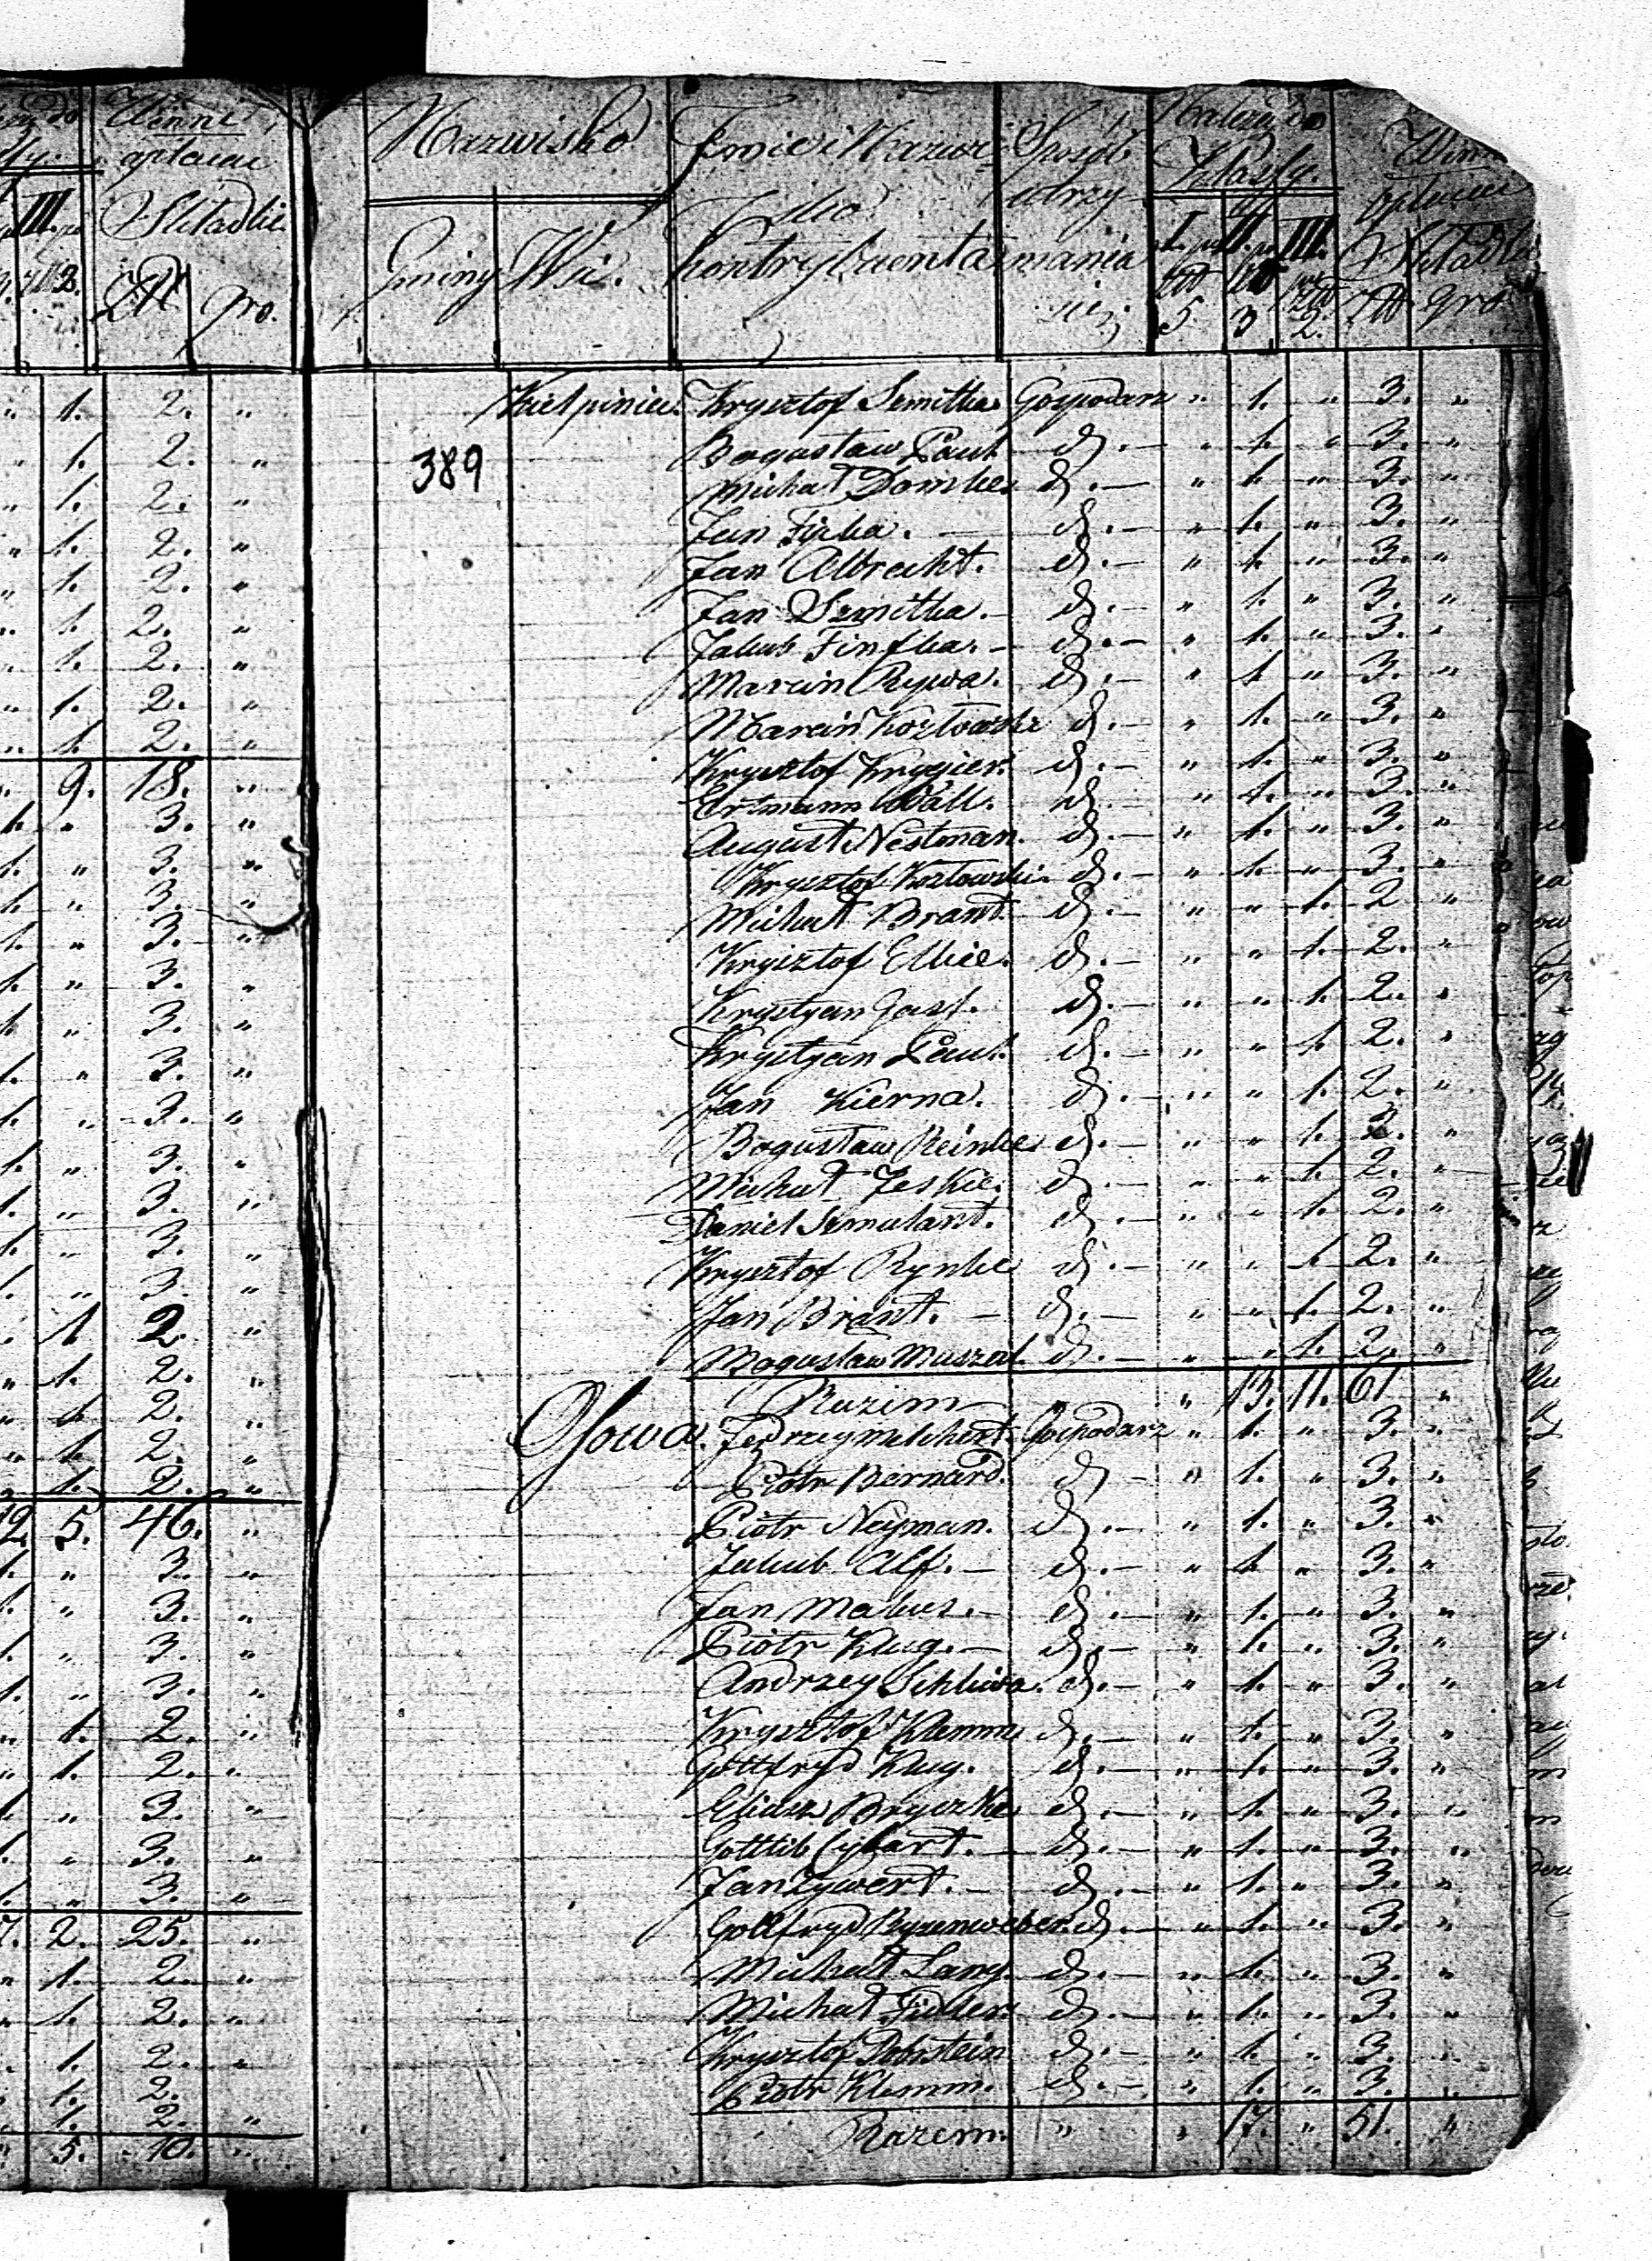 Nazwisko
Gminy Wsi.
Imie i Nazwi-
sko
kontrybuenta
Sposob
utrzy-
mania
się.
Należy do
Klassy.
I. II. III.
5 3 2.
Winni
opłacać
Składki
Złł gro.
Kiełpiniec. Krysztof Szmitka. Gospodarz " 1. " 3. "
389
Bogusław Paul d. — " 1. " 3. "
Michał Domke. d. — " 1. " 3. "
Jan Fijcka. — d. — " 1. " 3. "
Jan Albrecht. d. — " 1. " 3. "
Jan Szmitka. — d. — " 1. " 3. "
Jakub Finfka. — d. — " 1. " 3. "
Marcin Rywa. d. — " 1. " 3. "
Marcin Kozłowski d. — " 1. " 3. "
Krysztof Krygier. d. — " 1. " 3. "
Ertmann Wall. d. — " 1. " 3. "
August Nestman. d. — " 1. " 3. "
Krysztof Kozłowski d. — " 1. " 3. "
Michał Brant. d. — " " 1. 2 "
Krysztof Elkie. d. — " " 1. 2. "
Krystyan Gast. d. — " " 1. 2. "
Krystyan Paul. d. — " " 1. 2. "
Jan Kierna. d. — " " 1. 2. "
Bogusław Reinke d. — " " 1. 2. "
Michał Jeskie. d. — " " 1. 2. "
Daniel Szmulant. d. — " " 1. 2. "
Krysztof Rynke d. — " " 1. 2. "
Jan Brant. — d. — " " 1. 2. "
Bogusław Muszed. d. — " " 1. 2. "
Razim " 13. 11. 61 "
Osowa. Jędrzey Melchert. Gospodarz " 1. " 3. "
Piotr Bernard. d — " 1. " 3. "
Piotr Neyman. d. — " 1. " 3. "
Jakub Alf. — d. — " 1. " 3. "
Jan Makus. — d. — " 1. " 3. "
Piotr Klug. — d. — " 1. " 3. "
Andrzey Schliwa. d. — " 1. " 3. "
Krysztof Klemm d. — " 1. " 3. "
Gottfryd Klug. d. — " 1. " 3. "
Eliasz Bryszke d. — " 1. " 3. "
Gottlib Cybart. — d. — " 1. " 3. "
Jan Zywert. — d. — " 1. " 3. "
Gottfryd Ryzenweber. d. — " 1. " 3. "
Michał Lang. d. — " 1. " 3. "
Michał Fidler. d. — " 1. " 3. "
Krysztof Dobrstein d. — " 1. " 3. "
Piotr Klemm. d. — " 1. " 3. "
Razem. " " 17. " 51. "
Winni
opłacać
Składki
Złł gro.
1. 2. "
1. 2. "
1. 2. "
1. 2. "
1. 2. "
1. 2. "
1. 2. "
1. 2. "
1. 2. "
9. 18. "
" 3. "
" 3. "
" 3. "
" 3. "
" 3. "
" 3. "
" 3. "
" 3. "
" 3. "
" 3. "
" 3. "
" 3. "
1 2. "
1. 2. "
1. 2. "
1. 2. "
1. 2. "
12. 5. 46. "
" 3. "
" 3. "
" 3. "
" 3. "
1. 2. "
1. 2. "
" 3. "
" 3. "
" 3. "
7. 2. 25. "
1. 2. "
1. 2. "
1. 2. "
1. 2.
1. 2. "
5. 10. "